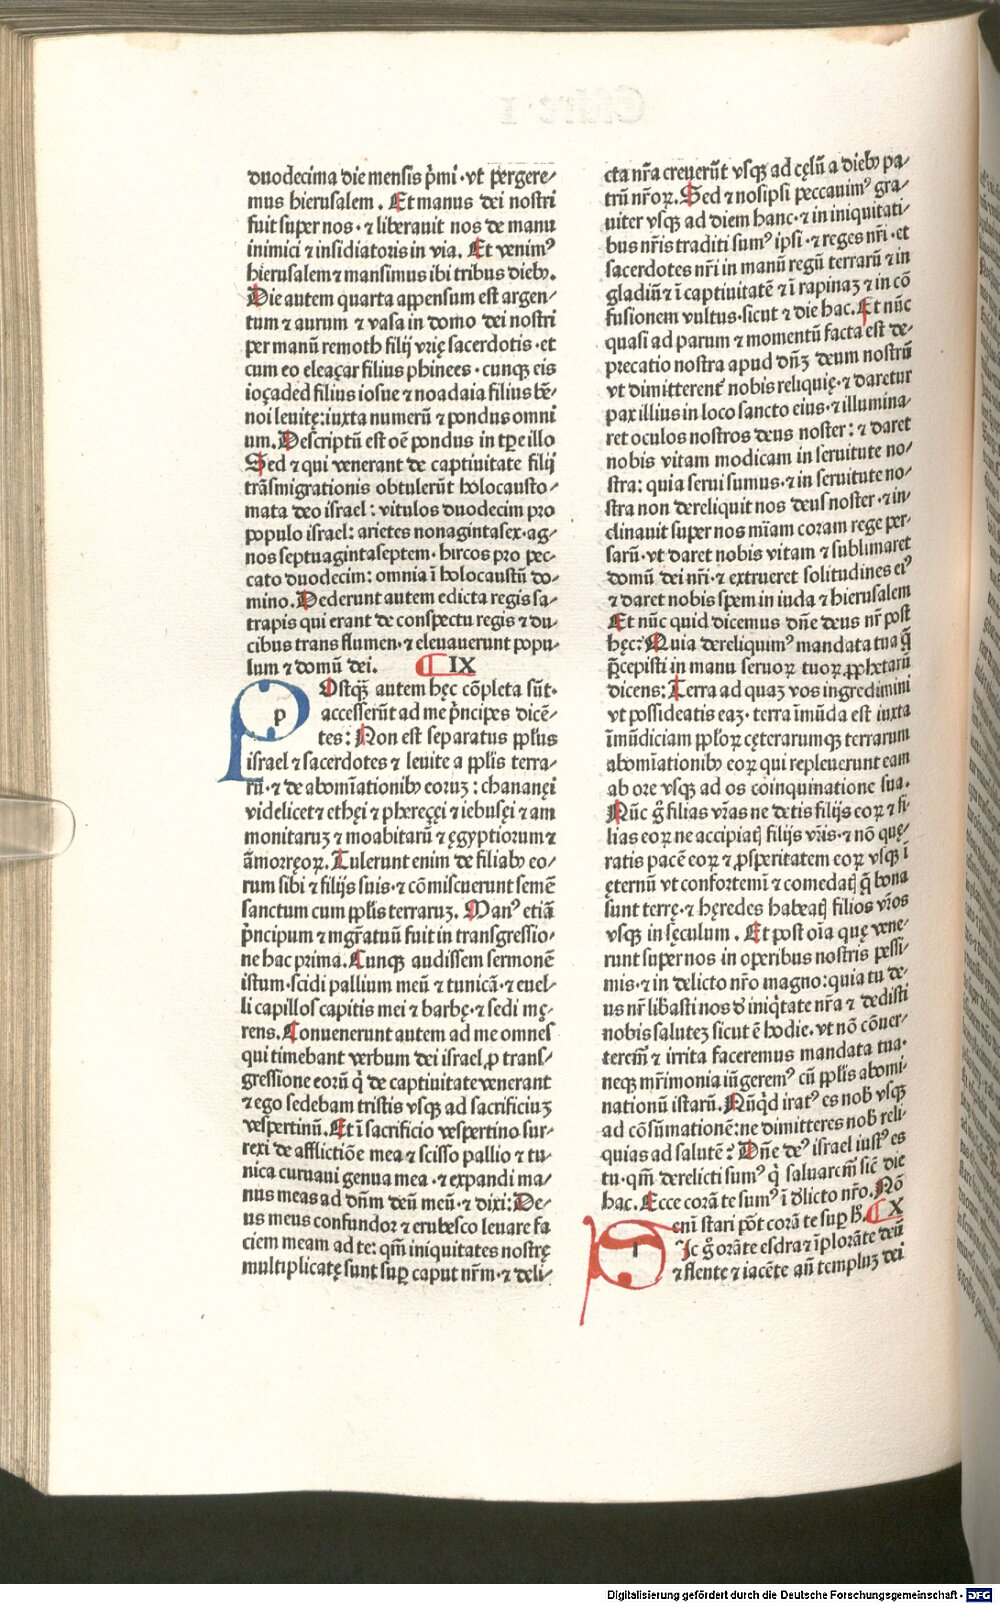 duodecima die mensis p̄mi · vt pergere⸗
mus hierusalem . Et manus dei nostri
fuit super nos · ⁊ liberauit nos de manu
inimici ⁊ insidiatoris in via. Et venimꝰ
hierusalem ⁊ mansimus ibi tribus diebꝫ.
Die autem quarta appensum est argen⸗
tum ⁊ aurum ⁊ vasa in domo dei nostri
per manū remoth filij vrię sacerdotis · et
cum eo eleaçar filius phinees · cunqꝫ eis
ioçaded filius iosue ⁊ noadaia filius bē⸗
noi leuitę: iuxta numerū ⁊ pondus omni
um. Descriptū est oē pondus in tp̄e illo
Sed ⁊ qui venerant de captiuitate filij
trāsmigrationis obtulerūt holocausto⸗
mata deo israel : vitulos duodecim pro
populo israel: arietes nonagintasex · ag⸗
nos septuagintaseptem · hircos pro pec⸗
cato duodecim: omnia ī holocaustū do⸗
mino. Dederunt autem edicta regis sa⸗
trapis qui erant de conspectu regis ⁊ du⸗
cibus trans flumen · ⁊ eleuauerunt popu⸗
lum ⁊ domū dei. IX
p Ostqꝫ̄ autem hęc cōpleta sūt·
accesserūt ad me p̄ncipes dicē⸗
tes: Non est separatus pp̄lus
israel ⁊ sacerdotes ⁊ leuite a pp̄lis terra⸗
rū · ⁊ de abomīationibꝫ eoruꝫ : chananęi
videlicet ⁊ ethęi ⁊ phereçęi ⁊ iebusęi ⁊ am
monitaruꝫ ⁊ moabitarū ⁊ ęgyptiorum ⁊
āmorręoꝝ. Tulerunt enim de filiabꝫ eo⸗
rum sibi ⁊ filijs suis · ⁊ cōmiscuerunt semē
sanctum cum pp̄lis terraruꝫ. Manꝰ etiā
p̄ncipum ⁊ mgr̄atuū fuit in transgressio⸗
ne hac prima. Cunqꝫ audissem sermonē
istum · scidi pallium meū ⁊ tunicā · ⁊ euel⸗
li capillos capitis mei ⁊ barbę · ⁊ sedi mę⸗
rens. Conuenerunt autem ad me omnes
qui timebant verbum dei israel ꝓ trans⸗
gressione eorū q̄ de captiuitate venerant
⁊ ego sedebam tristis vsqꝫ ad sacrificiuꝫ
vespertinū. Et ī sacrificio vespertino sur⸗
rexi de afflictiōe mea ⁊ scisso pallio ⁊ tu⸗
nica curuaui genua mea · ⁊ expandi ma⸗
nus meas ad dn̄m deū meū · ⁊ dixi: De⸗
us meus confundor ⁊ erubesco leuare fa
ciem meam ad te: qm̄ iniquitates nostrę
multiplicatę sunt suꝑ caput nr̄m · ⁊ deli⸗
cta nr̄a creuerūt vsqꝫ ad cęlū a diebꝫ pa⸗
trū nr̄oꝝ. Sed ⁊ nosipsi peccauimꝰ gra⸗
uiter vsqꝫ ad diem hanc · ⁊ in iniquitati⸗
bus nr̄is traditi sumꝰ ipsi · ⁊ reges nr̄i · et
sacerdotes nr̄i in manū regū terrarū ⁊ in
gladiū ⁊ ī captiuitatē ⁊ ī rapinaꝫ ⁊ in cō
fusionem vultus · sicut ⁊ die hac. Et nūc
quasi ad parum ⁊ momentū facta est de⸗
precatio nostra apud dn̄ꝫ deum nostrū
vt dimitterent᷑ nobis reliquię · ⁊ daretur
pax illius in loco sancto eius · ⁊ illumina⸗
ret oculos nostros deus noster : ⁊ daret
nobis vitam modicam in seruitute no⸗
stra: quia serui sumus · ⁊ in seruitute no⸗
stra non dereliquit nos deus noster · ⁊ in⸗
clinauit super nos mīam coram rege per⸗
sarū · vt daret nobis vitam ⁊ sublimaret
domū dei nr̄i · ⁊ extrueret solitudines eiꝰ
⁊ daret nobis spem in iuda ⁊ hierusalem
Et nūc quid dicemus dn̄e deus nr̄ post
hęc: Quia dereliquimꝰ mandata tua q̄
p̄cepisti in manu seruoꝝ tuoꝝ ꝓphetarū
dicens: Terra ad quaꝫ vos ingredimini
vt possideatis eaꝫ · terra īmūda est iuxta
īmūdiciam pp̄loꝝ cęterarumqꝫ terrarum
abomīationibꝫ eoꝝ qui repleuerunt eam
ab ore vsqꝫ ad os coinquinatione sua.
Nūc ḡ filias vr̄as ne detis filijs eoꝝ ⁊ fi⸗
lias eoꝝ ne accipiatꝭ filijs vr̄is · ⁊ nō quę⸗
ratis pacē eoꝝ ⁊ ꝓsperitatem eoꝝ vsqꝫ ī
ęternū vt confortemī ⁊ comedatꝭ q̄ bona
sunt terrę · ⁊ hęredes habeatꝭ filios vr̄os
vsqꝫ in sęculum . Et post oīa quę vene⸗
runt super nos in operibus nostris pessi⸗
mis · ⁊ in delicto nr̄o magno: quia tu de⸗
us nr̄ libasti nos d̄ iniq̄tate nr̄a ⁊ dedisti
nobis saluteꝫ sicut ē hodie. vt nō cōuer⸗
terem᷑ ⁊ irrita faceremus mandata tua·
neqꝫ mr̄imonia iūgeremꝰ cū pp̄lis abomi⸗
nationū istarū. Nūqd̄ iratꝰ es nob̄ vsqꝫ
ad cōsūmationē: ne dimitteres nob̄ reli⸗
quias ad salutē? Dn̄e deꝰ israel iustꝰ es
tu · qm̄ derelicti sumꝰ q̄ saluarem᷑ sic̄ die
hac. Ecce corā te sumꝰ ī d̄licto nr̄o. Nō
eni stari pōt corā te suꝑ h̄. X
i Ic ḡ orāte esdra ⁊ īplorāte deū
⁊ flente ⁊ iacēte an̄ templuꝫ dei
Digitalisierung gefördert durch die Deutsche Forschungsgemeinschaft · DFG